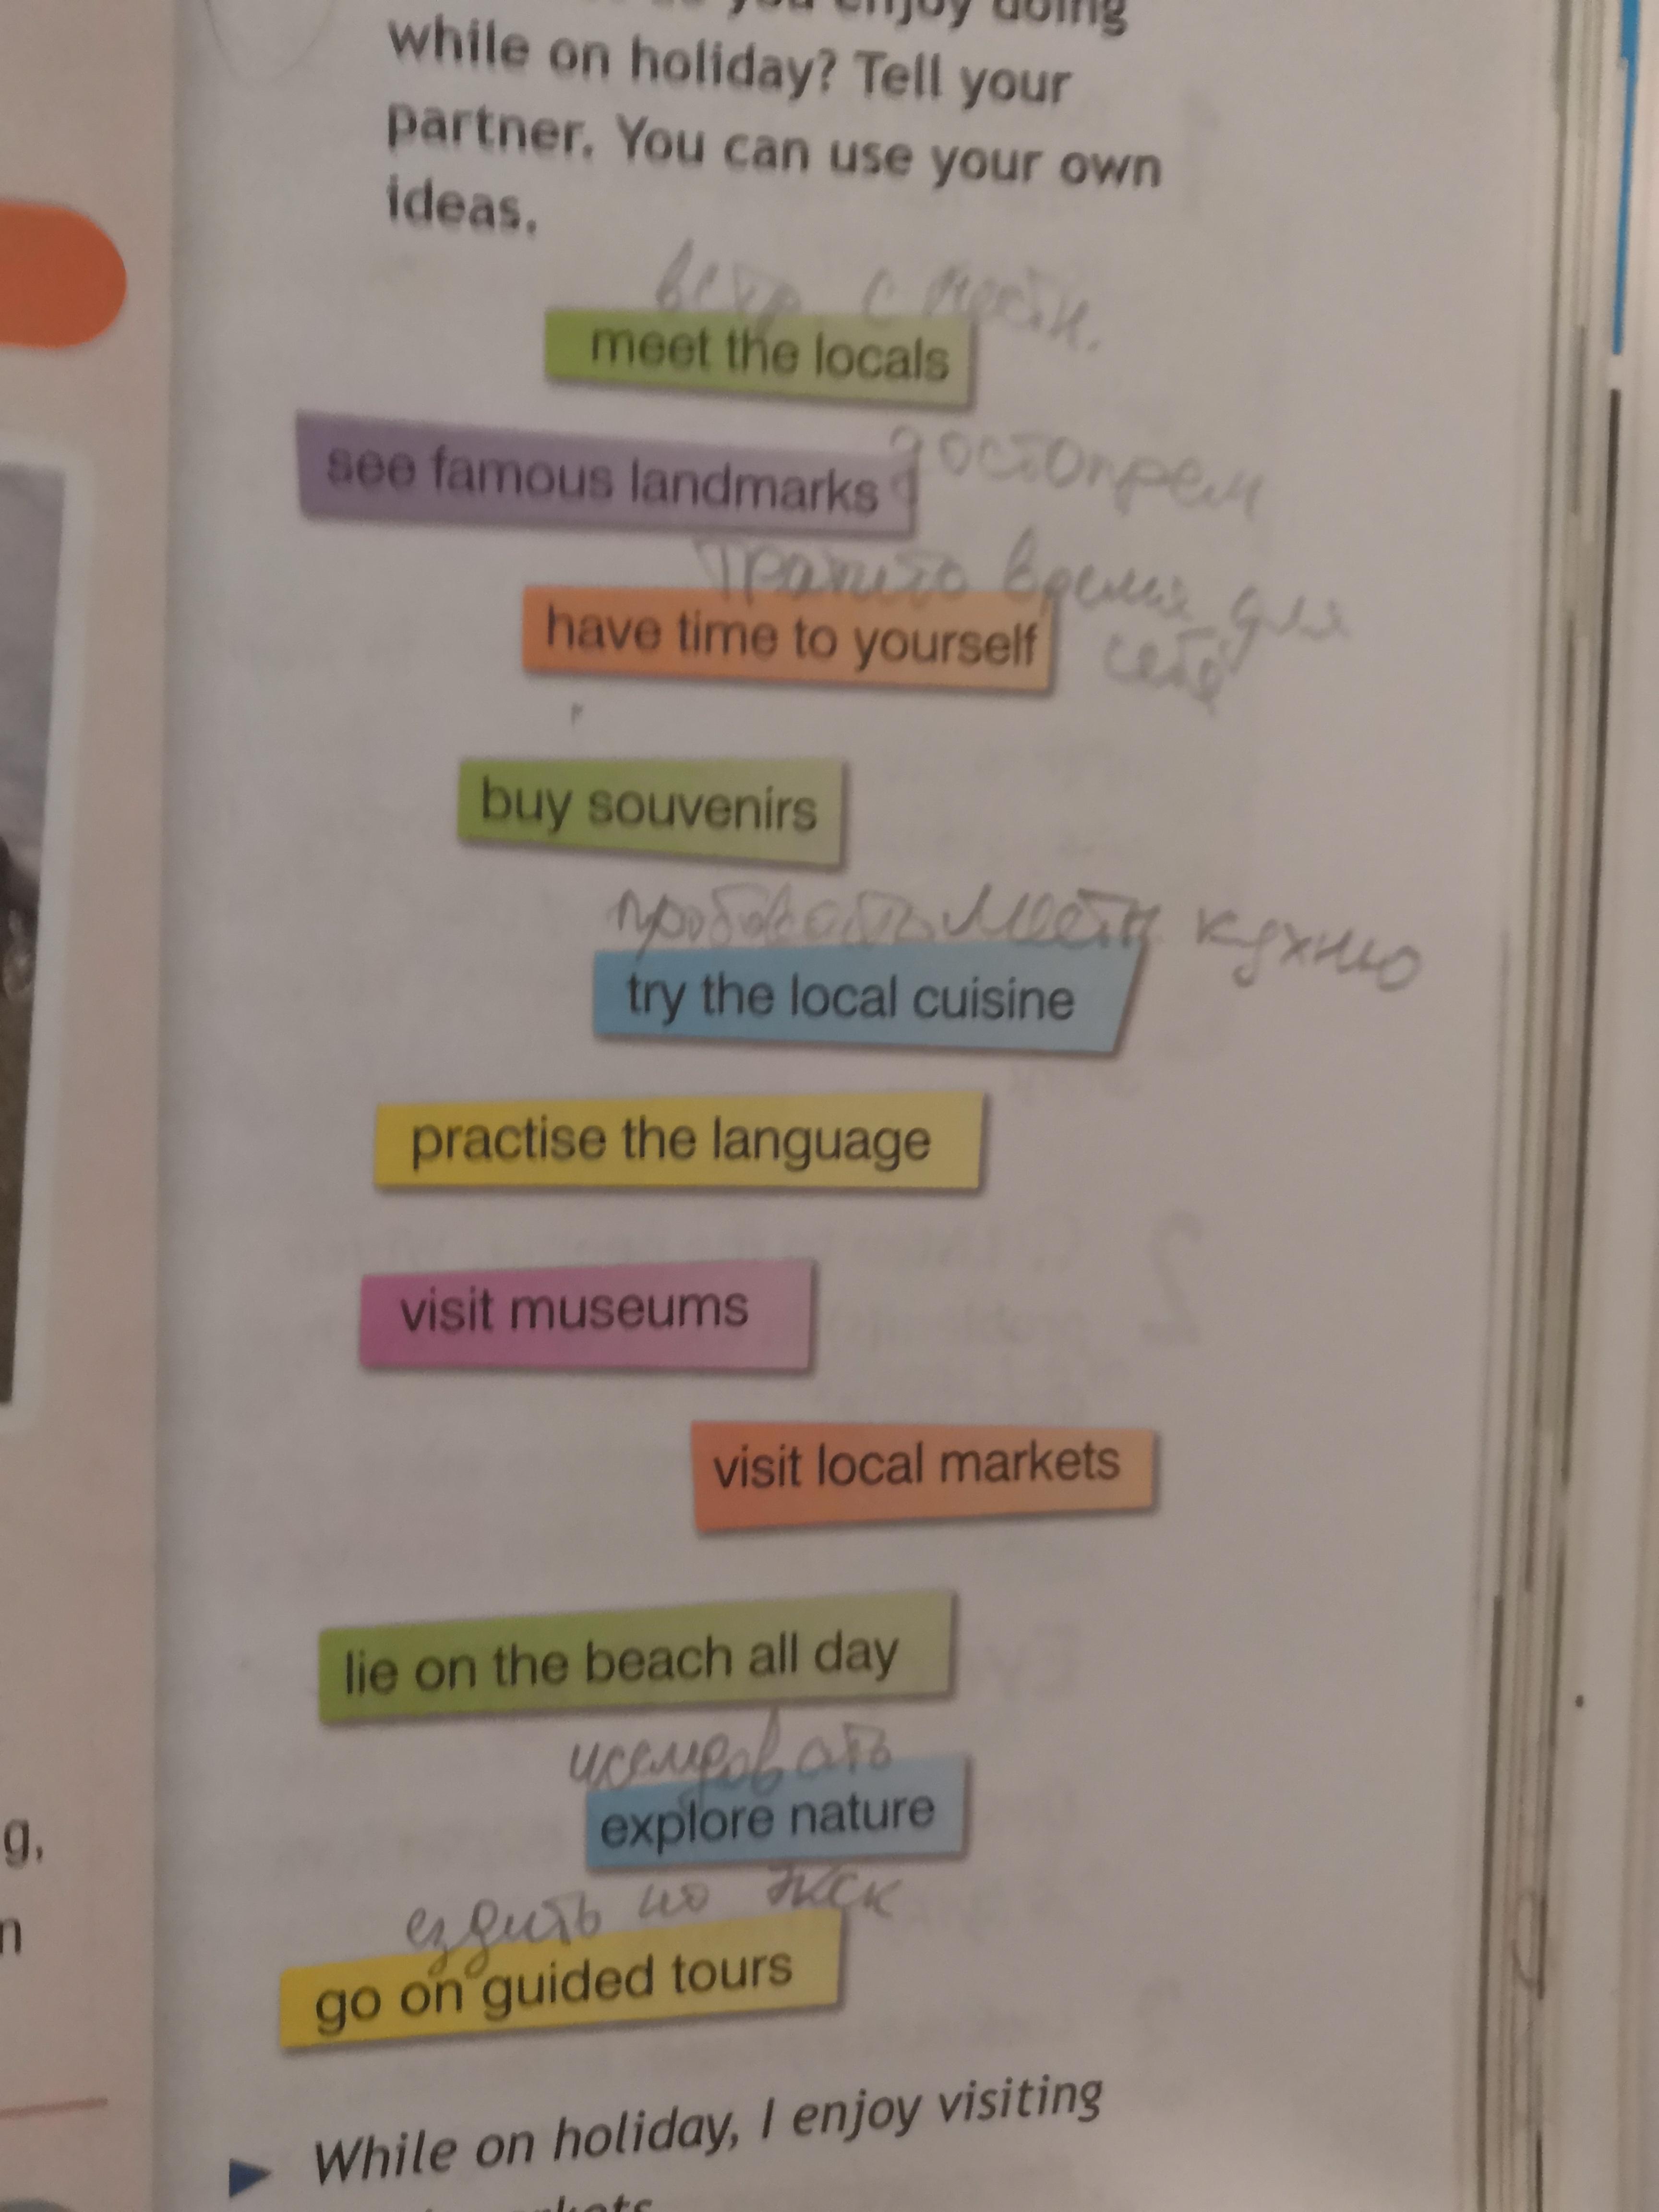 you enjoy doing
while on holiday? Tell your
partner. You can use your own
ideas.
встр с местн.
meet the locals
see famous landmarks
достопрем
трачю время для
себя
have time to yourself
buy souvenirs
пробовать местн кухню
try the local cuisine
practise the language
visit museums
visit local markets
lie on the beach all day
explore nature
ездить по экск
go on guided tours
While on holiday, I enjoy visiting
g,
n